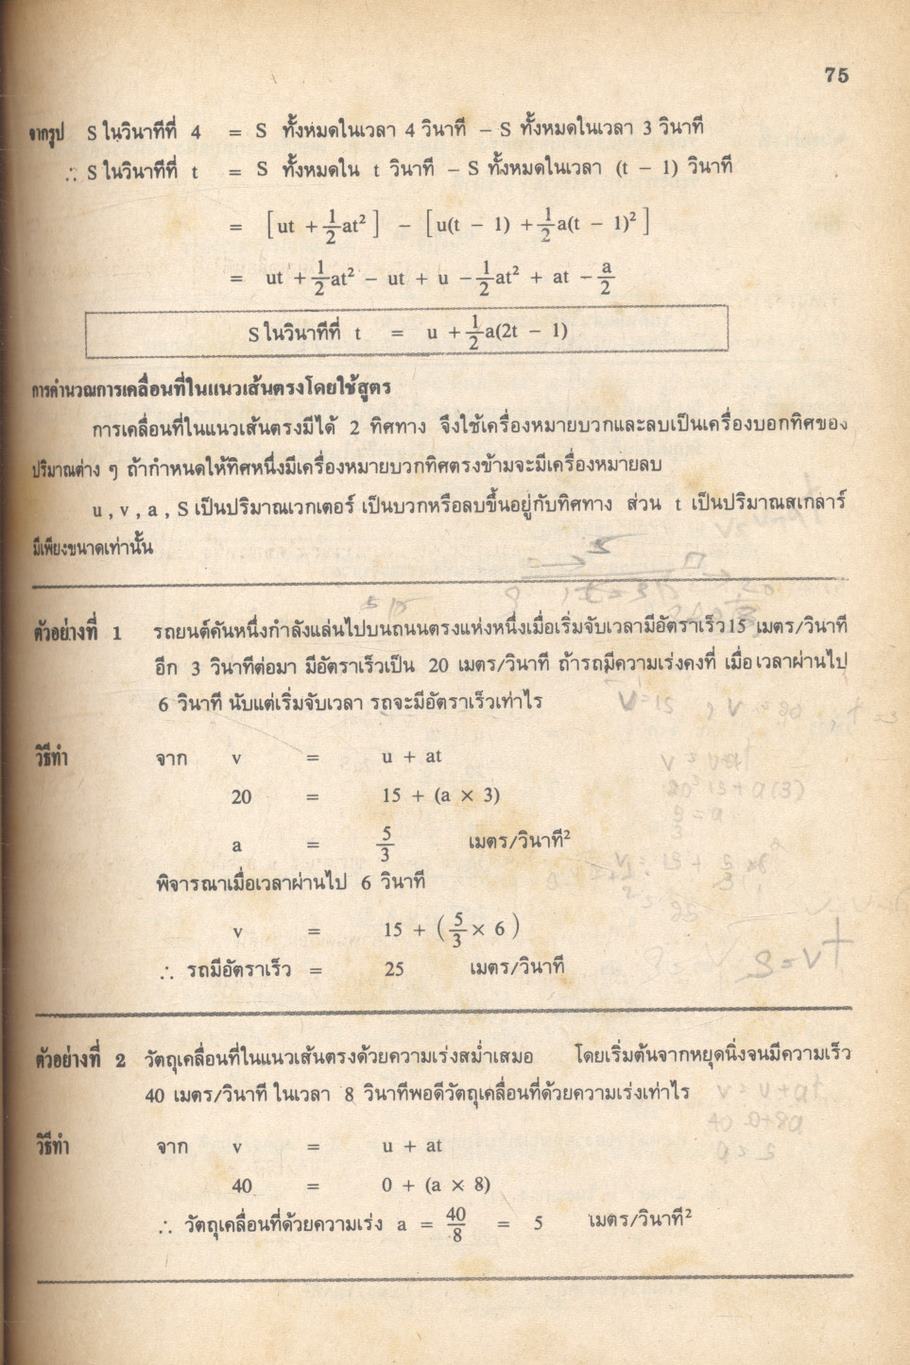 75
จากรูป S ในวินาทีที่ 4 = S ทั้งหมดในเวลา 4 วินาที − S ทั้งหมดในเวลา 3 วินาที
∴ S ในวินาทีที่ t = S ทั้งหมดใน t วินาที − S ทั้งหมดในเวลา (t − 1) วินาที
= [ut + 1/2 at²] − [u(t − 1) + 1/2 a(t − 1)²]
= ut + 1/2 at² − ut + u − 1/2 at² + at − a/2
S ในวินาทีที่ t = u + 1/2 a(2t − 1)
การคำนวณการเคลื่อนที่ในแนวเส้นตรงโดยใช้สูตร
การเคลื่อนที่ในแนวเส้นตรงมีได้ 2 ทิศทาง จึงใช้เครื่องหมายบวกและลบเป็นเครื่องบอกทิศของ
ปริมาณต่าง ๆ ถ้ากำหนดให้ทิศหนึ่งมีเครื่องหมายบวกทิศตรงข้ามจะมีเครื่องหมายลบ
u , v , a , S เป็นปริมาณเวกเตอร์ เป็นบวกหรือลบขึ้นอยู่กับทิศทาง ส่วน t เป็นปริมาณสเกลาร์
มีเพียงขนาดเท่านั้น
ตัวอย่างที่ 1 รถยนต์คันหนึ่งกำลังแล่นไปบนถนนตรงแห่งหนึ่งเมื่อเริ่มจับเวลามีอัตราเร็ว 15 เมตร/วินาที
อีก 3 วินาทีต่อมา มีอัตราเร็วเป็น 20 เมตร/วินาที ถ้ารถมีความเร่งคงที่ เมื่อเวลาผ่านไป
6 วินาที นับแต่เริ่มจับเวลา รถจะมีอัตราเร็วเท่าไร
วิธีทำ จาก v = u + at
20 = 15 + (a × 3)
a = 5/3 เมตร/วินาที²
พิจารณาเมื่อเวลาผ่านไป 6 วินาที
v = 15 + (5/3 × 6)
∴ รถมีอัตราเร็ว = 25 เมตร/วินาที
ตัวอย่างที่ 2 วัตถุเคลื่อนที่ในแนวเส้นตรงด้วยความเร่งสม่ำเสมอ โดยเริ่มต้นจากหยุดนิ่งจนมีความเร็ว
40 เมตร/วินาที ในเวลา 8 วินาทีพอดีวัตถุเคลื่อนที่ด้วยความเร่งเท่าไร
วิธีทำ จาก v = u + at
40 = 0 + (a × 8)
∴ วัตถุเคลื่อนที่ด้วยความเร่ง a = 40/8 = 5 เมตร/วินาที²